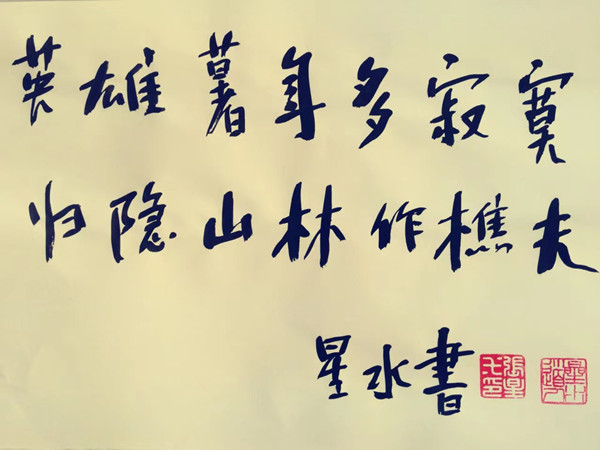 英雄暮年多寂寞
归隐山林作樵夫
星水書